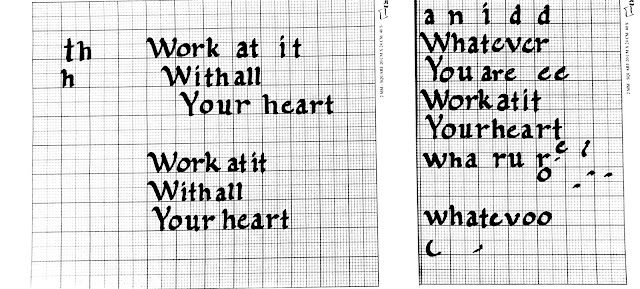 th Work at it
h Withall
Your heart
Work at it
Withall
Your heart
a n i d d
Whatever
You are ee
Workatit
Yourheart
wha ru r e
o
whatevoo
c